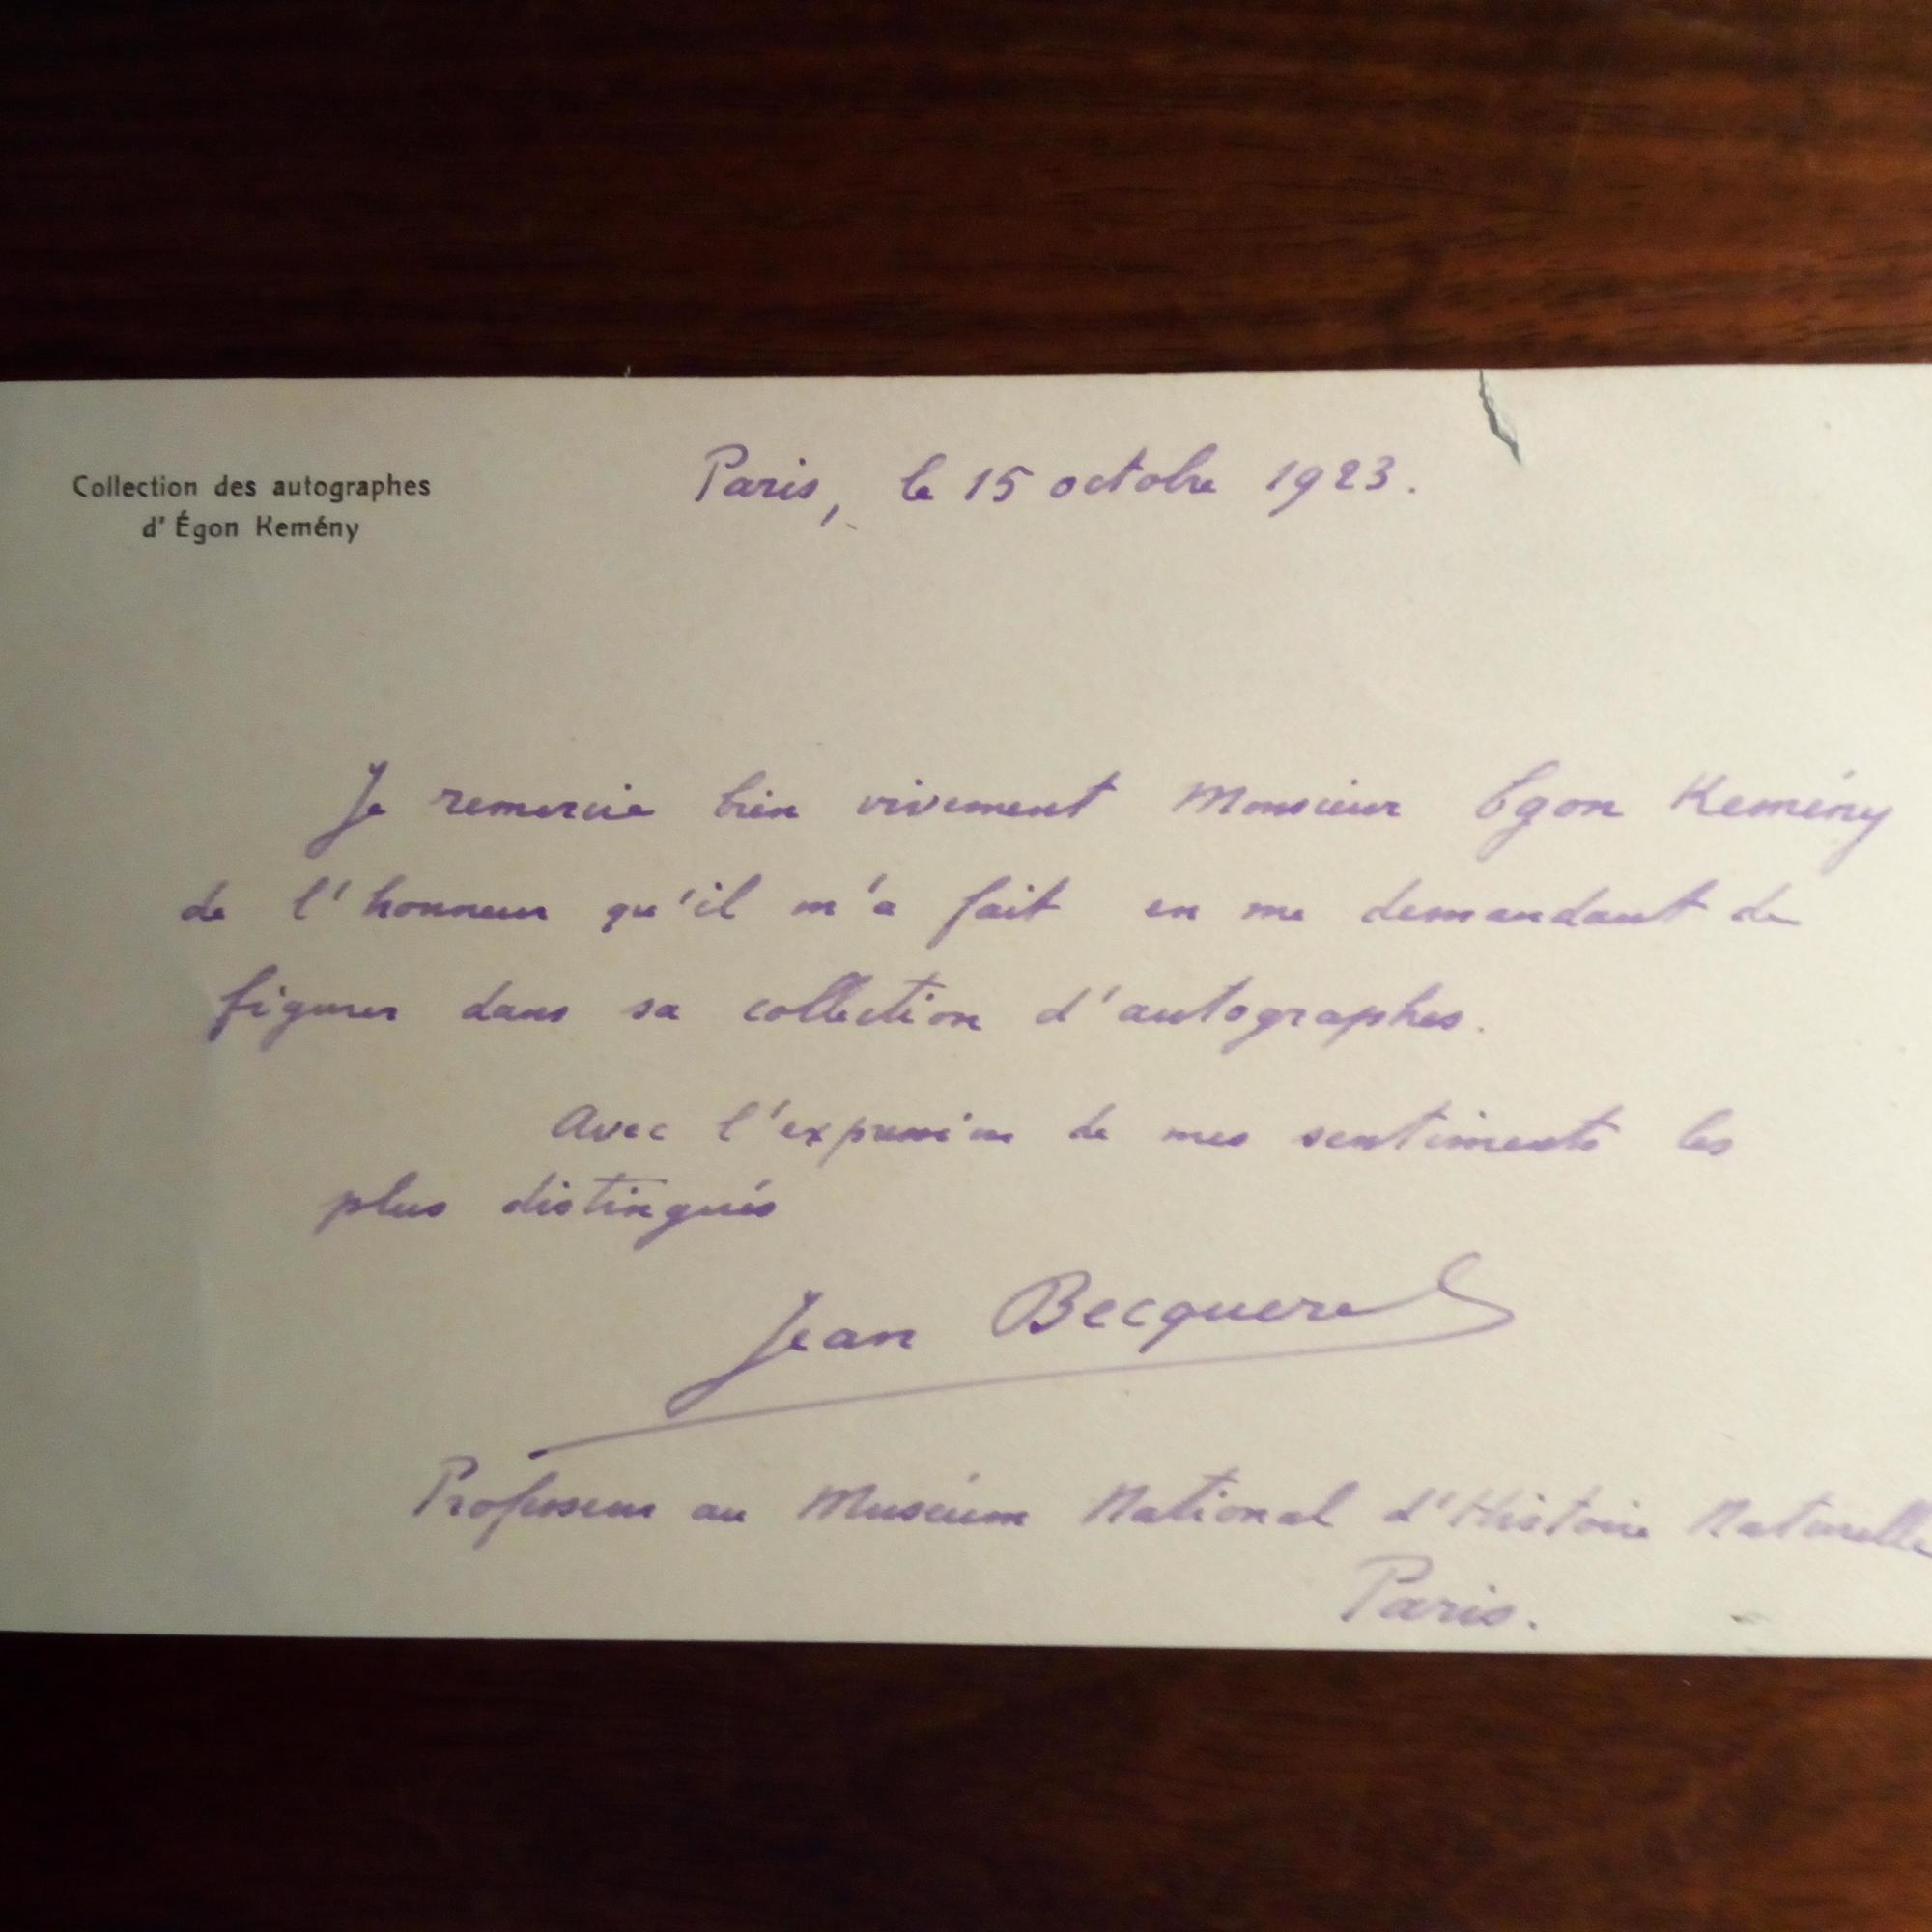 Collection des autographes
d' Égon Kemény
Paris, le 15 octobre 1923.
Je remercie bien vivement Monsieur Egon Kemény
de l'honneur qu'il m'a fait en me demandant de
figurer dans sa collection d'autographes.
Avec l'expression de mes sentiments les
plus distingués
Jean Becquerel
Professeur au Muséum National d'Histoire Naturelle
Paris.